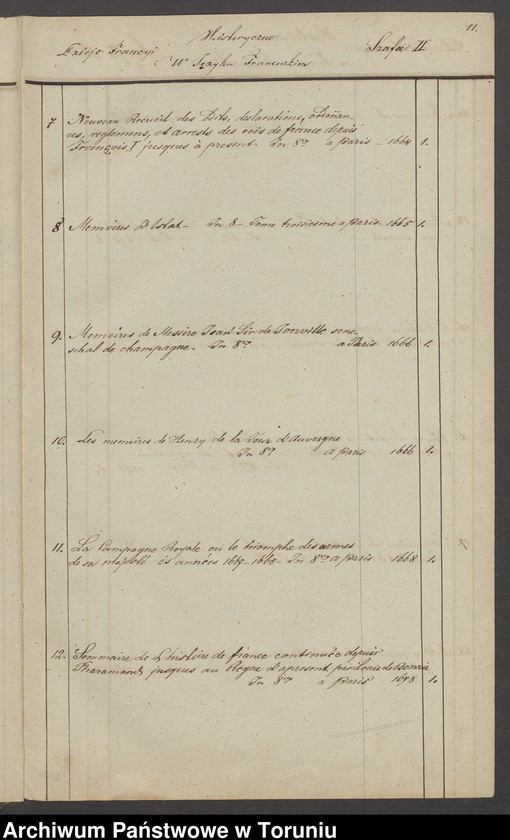 11.
Historyczne
Dzieje Francyi Szafa II
W Języku Francuzkim
7 Nouveau Recueil des Edits, declarations, ordñan-
ces, reglemens, et arrests des rois de france depuis
François I jusques à present. In 8vo a Paris — 1664 1.
8 Memoires D'Estat — In 8 — Tome troisiesme a Paris 1665 1.
9. Memoires de Messire Jean Sir de Jonville sene-
schal de champagne. In 8vo a Paris 1666 1.
10. Les memoires de Henry de la Tour d'Auvergne
In 8o a Paris 1666 1.
11. La Campagne Royale ou le triomphe des armes
de sa majesté és années 1667-1668 — In 8vo a Paris 1668 1.
12. Sommaire de L'histoire de france continuée depuis
Pharamond jusques au Regne d'apresent par Louis de
In 8vo a Paris 1678 1.
Archiwum Państwowe w Toruniu